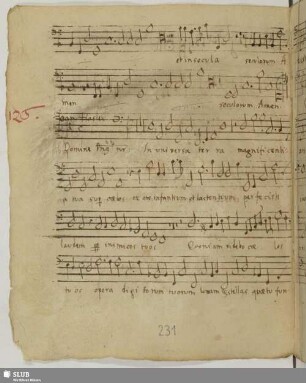 et in secula seculorum A
men seculorum Amen
125.
Domine Dns no In universa ter ra magnificenti
a tua sup coelos ex ore infantium et lactentium perfecisti
laudem inimicos tuos Quoniam videbo coe los
tu os opera digi torum tuorum lunam & stellas quae tu fun
231
SLUB